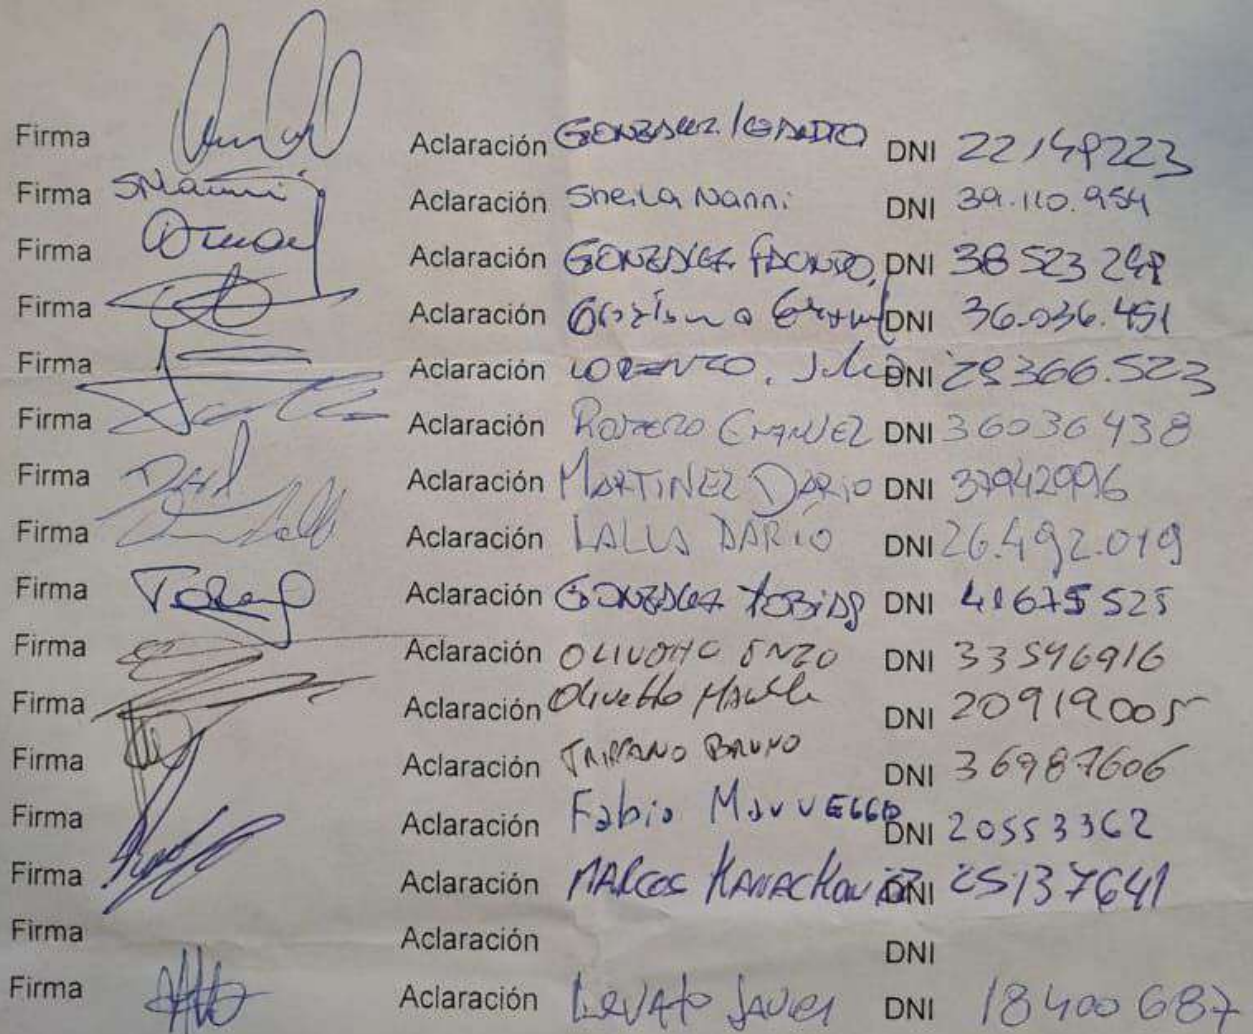 Firma Aclaración GONZALEZ DNI 22149223
Firma SNanni Aclaración Sheila Nanni DNI 39.110.954
Firma Aclaración GONZALEZ FACUNDO, DNI 38523248
Firma Aclaración DNI 36.036.451
Firma Aclaración LORENZO, Julio DNI 29366.523
Firma Aclaración ROMERO EMANUEL DNI 36036438
Firma Aclaración MARTINEZ DARIO DNI 37942996
Firma Aclaración LALLA DARIO DNI 26.492.019
Firma Aclaración GONZALEZ TOBIAS DNI 41675525
Firma Aclaración OLIVETTO ENZO DNI 33546916
Firma Aclaración Olivetto DNI 20919005
Firma Aclaración BRUNO DNI 36987606
Firma Aclaración Fabio DNI 20553362
Firma Aclaración MARCOS DNI 25137641
Firma Aclaración DNI
Firma Aclaración Levato Javier DNI 18400687